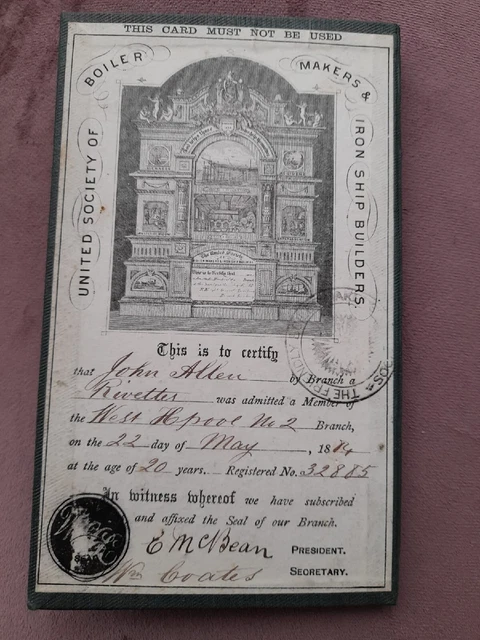 THIS CARD MUST NOT BE USED
UNITED SOCIETY OF BOILER MAKERS & IRON SHIP BUILDERS.
This is to certify
that John Allen by Branch a
Rivetter was admitted a Member of
the West Hpool No 2 Branch,
on the 22 day of May, 18
at the age of 20 years. Registered No. 32885
In witness whereof we have subscribed
and affixed the Seal of our Branch.
E McBean PRESIDENT.
Wm Coates SECRETARY.
THE FRIENDLY